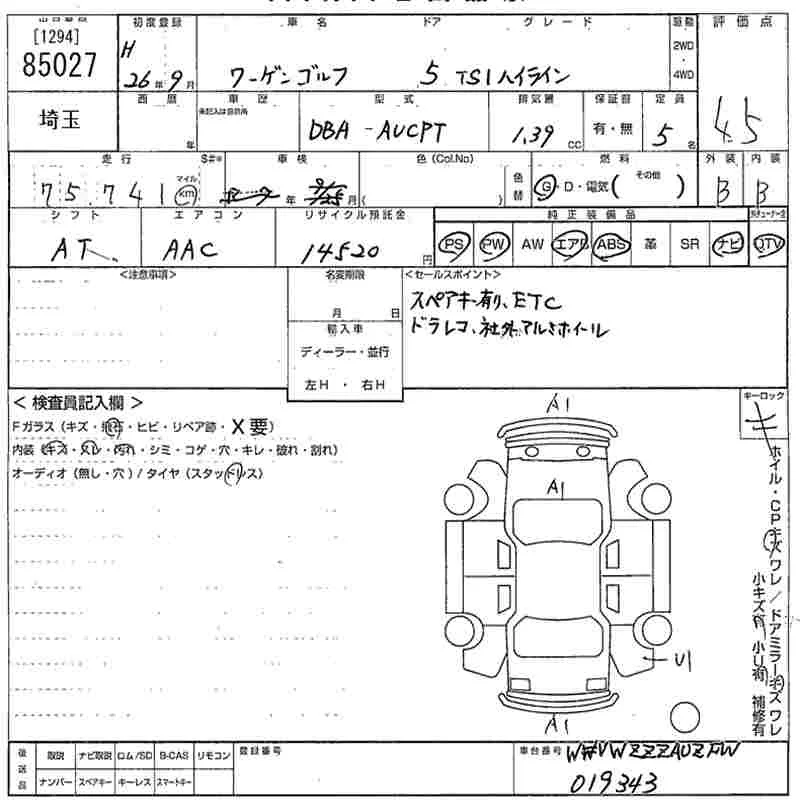 [1294]
85027
初度登録
車名
ドア
グレード
評価点
H
26年9月
ワーゲンゴルフ
5
TSIハイライン
2WD
・
4WD
4.5
埼玉
西暦
車歴
型式
排気量
保証書
定員
年
未記入は自家用
DBA-AUCPT
1.39cc
有・無
5名
走行
S#*
車検
色(Col.No)
色替
燃料
外装
内装
75.741
マイル
km
年
月(
)
G・D・電気(その他)
B
B
シフト
エアコン
リサイクル預託金
純正装備品
AT
AAC
14520円
PS
PW
AW
エアB
ABS
革
SR
ナビ
TV
<注意事項>
名変期限
<セールスポイント>
月
日
スペアキー有り、ETC
ドラレコ、社外アルミホイール
輸入車
ディーラー・並行
左H・右H
< 検査員記入欄 >
キーロック
キ
Fガラス(キズ・飛石・ヒビ・リペア跡・X要)
内装(キズ・スレ・汚れ・シミ・コゲ・穴・キレ・破れ・割れ)
オーディオ(無し・穴)/タイヤ(スタッドレス)
A1
A1
U1
A1
ホイル・CPキズワレ/ドアミラーキズワレ
小キズ有 小U有 補修有
後送品
取説
ナビ取説
ロム/SD
B-CAS
リモコン
登録番号
車台番号
ナンバー
スペアキー
キーレス
スマートキー
WVWZZZAUZFW
019343